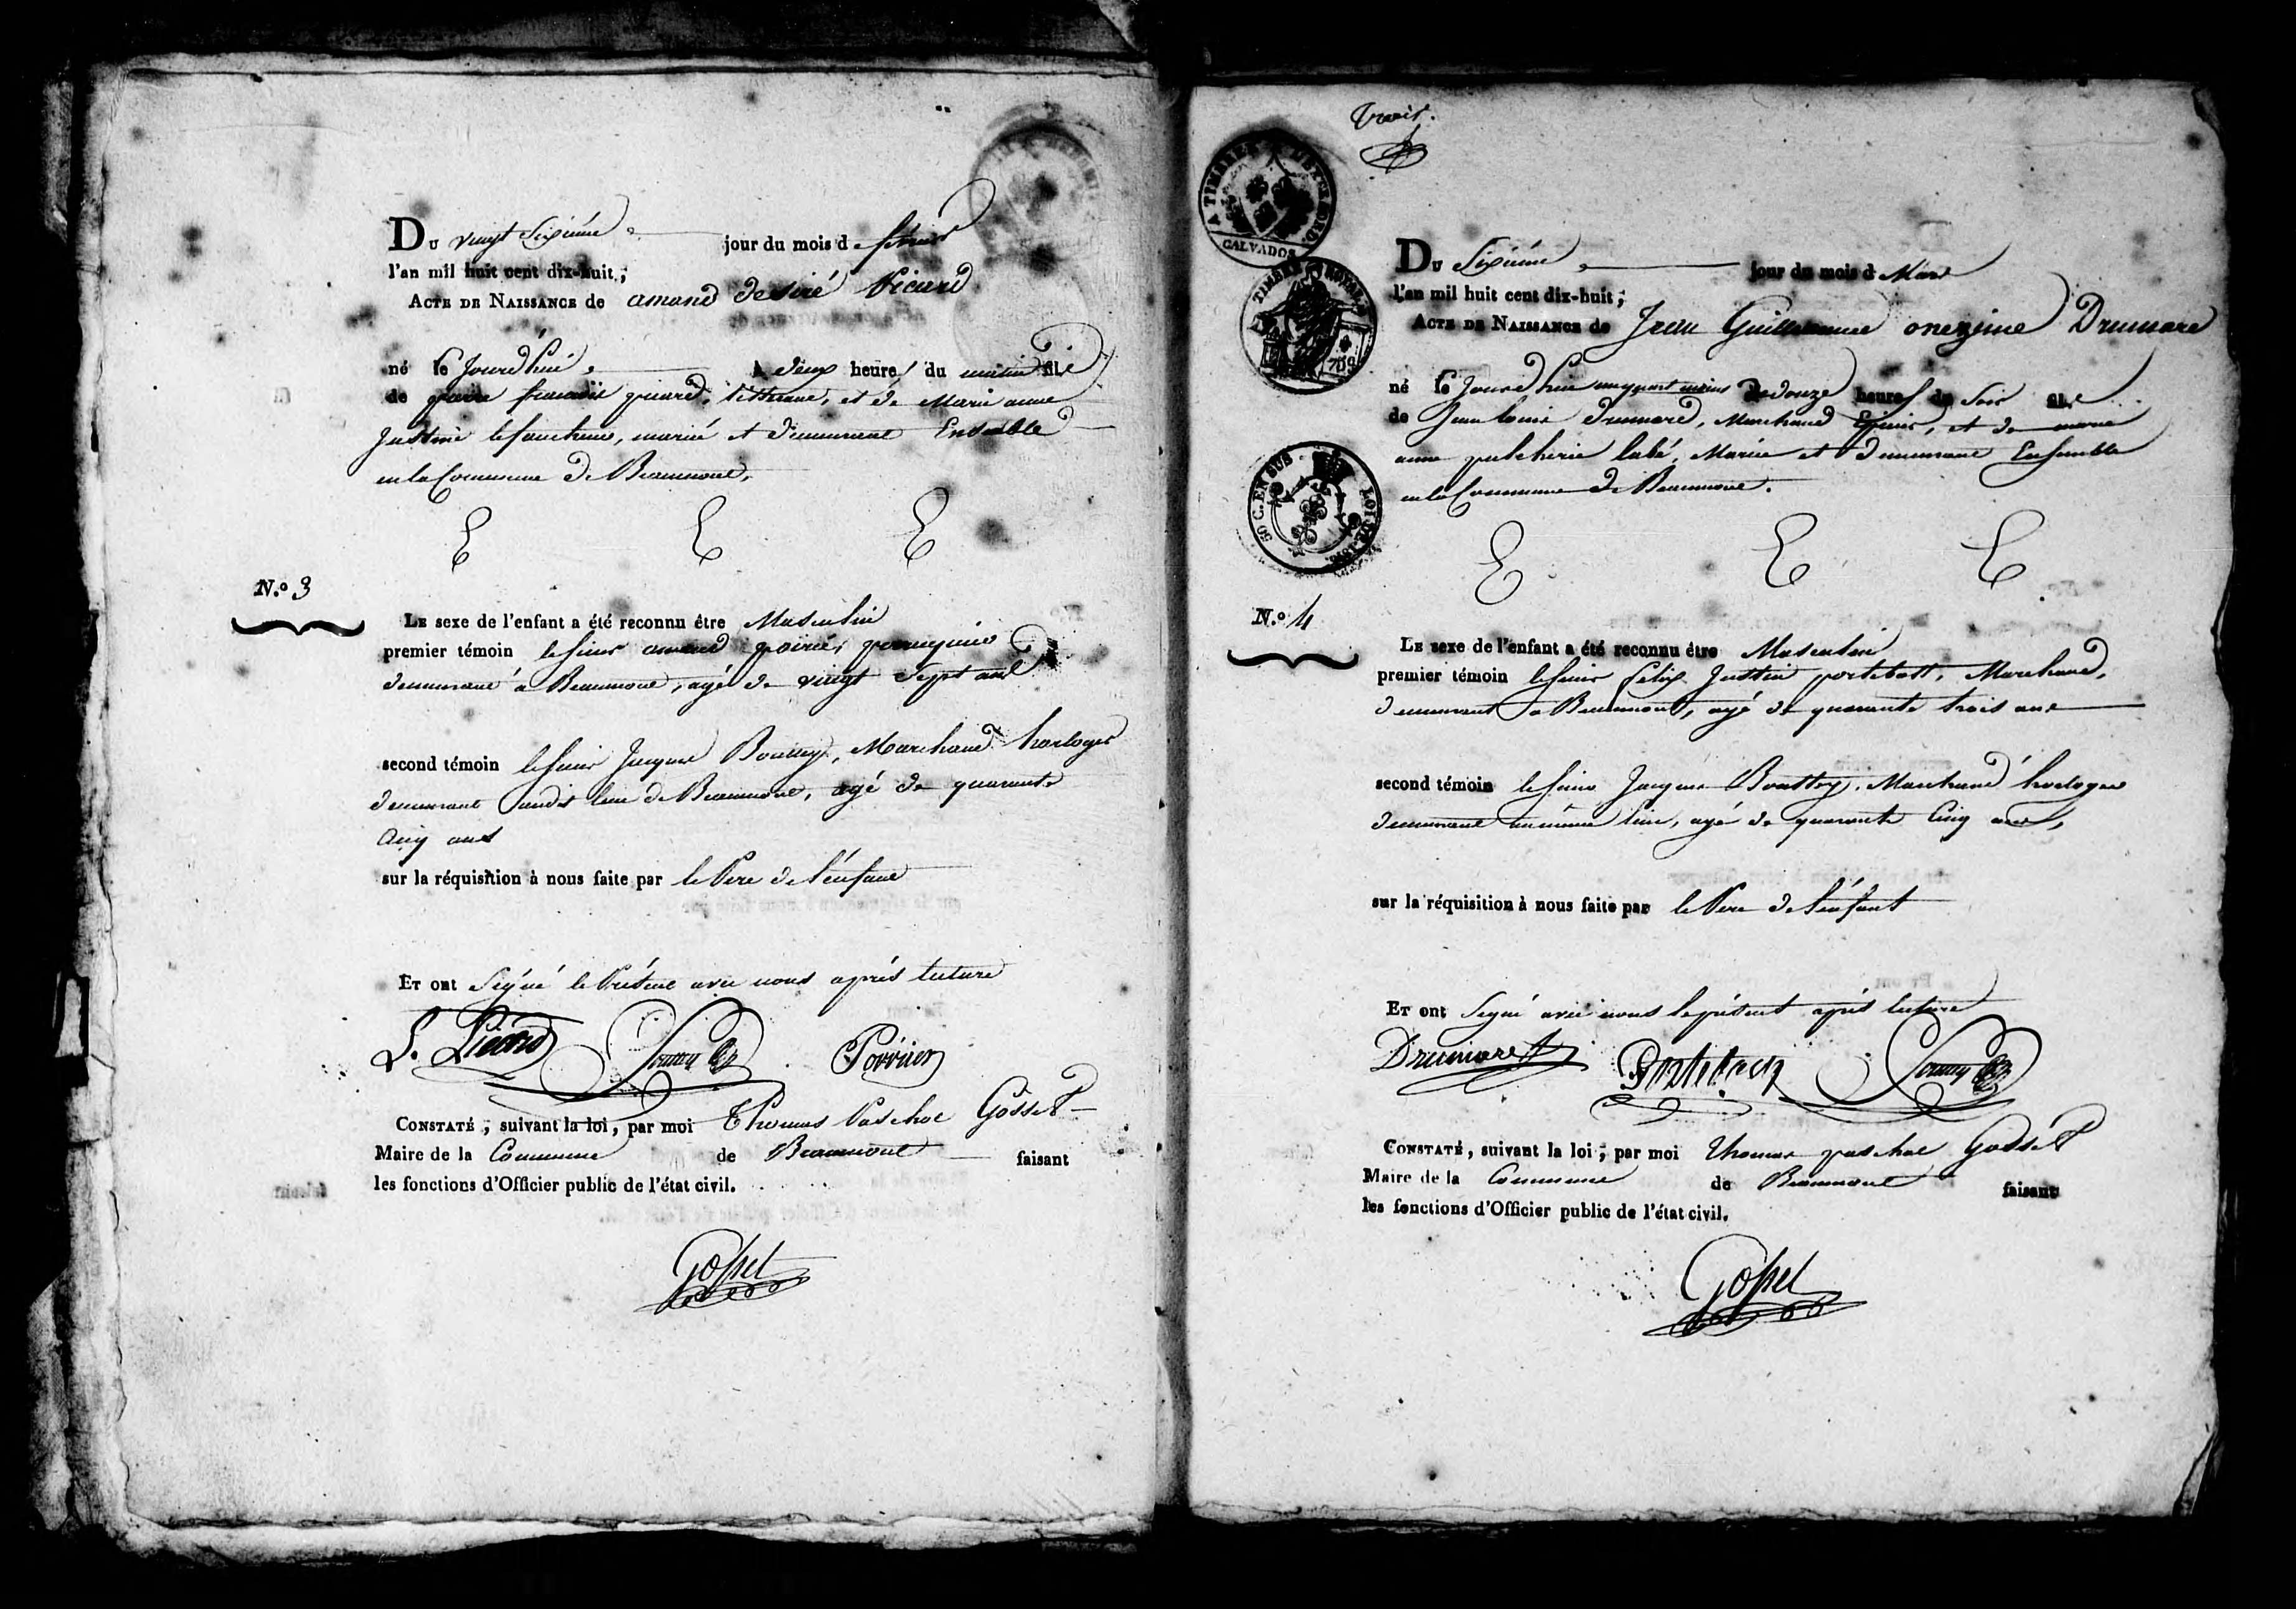 Du vingt Sixiéme jour du mois de février
l'an mil huit cent dix-huit ;
Acte de Naissance de amand desiré Picard
né le Jourdhui à deux heures du matin fils
de pierre francois picard, et de Marie anne
Justine mariés et demeurant Ensemble
en la Commune de Beaumont.
N.o 3
Le sexe de l'enfant a été reconnu être Masculin
premier témoin le sieur amand poirier perruquier
demeurant à Beaumont, agé de vingt sept ans
second témoin le sieur Jacques Bouttey, Marchand horloger
demeurant audit lieu de Beaumont, agé de quarante
Cinq ans
sur la réquisition à nous faite par le Pere de l'enfant
Et ont Signé le Présent avec nous après lecture
Picard Poirier
Constaté, suivant la loi, par moi Thomas Paschal Gosset
Maire de la Commune de Beaumont faisant
les fonctions d'Officier public de l'état civil.
Gosset
trois.
A TIMBRER A L'EXTRAORD.
CALVADOS
TIMBRE ROYAL
709
50 C. EN SUS
LOI DE 1816.
Du Sixiéme jour du mois de Mars
l'an mil huit cent dix-huit ;
Acte de Naissance de Jean Guillaume onezime Drumare
né le Jourdhui un quart moins de douze heures du Soir fils
de Jean louis drumare, Marchand Epicier, et de marie
anne pulcherie labé, Mariés et demeurant Ensemble
en la Commune de Beaumont.
N.o 4
Le sexe de l'enfant a été reconnu être Masculin
premier témoin le sieur félix Justin Marchand,
demeurant à Beaumont, agé de quarante trois ans
second témoin le sieur Jacques Bouttey, Marchand horloger
demeurant au même lieu, agé de quarante Cinq ans,
sur la réquisition à nous faite par le Pere de l'enfant
Et ont Signé avec nous le présent après lecture
Drumare
Constaté, suivant la loi, par moi Thomas paschal Gosset
Maire de la Commune de Beaumont faisant
les fonctions d'Officier public de l'état civil.
Gosset